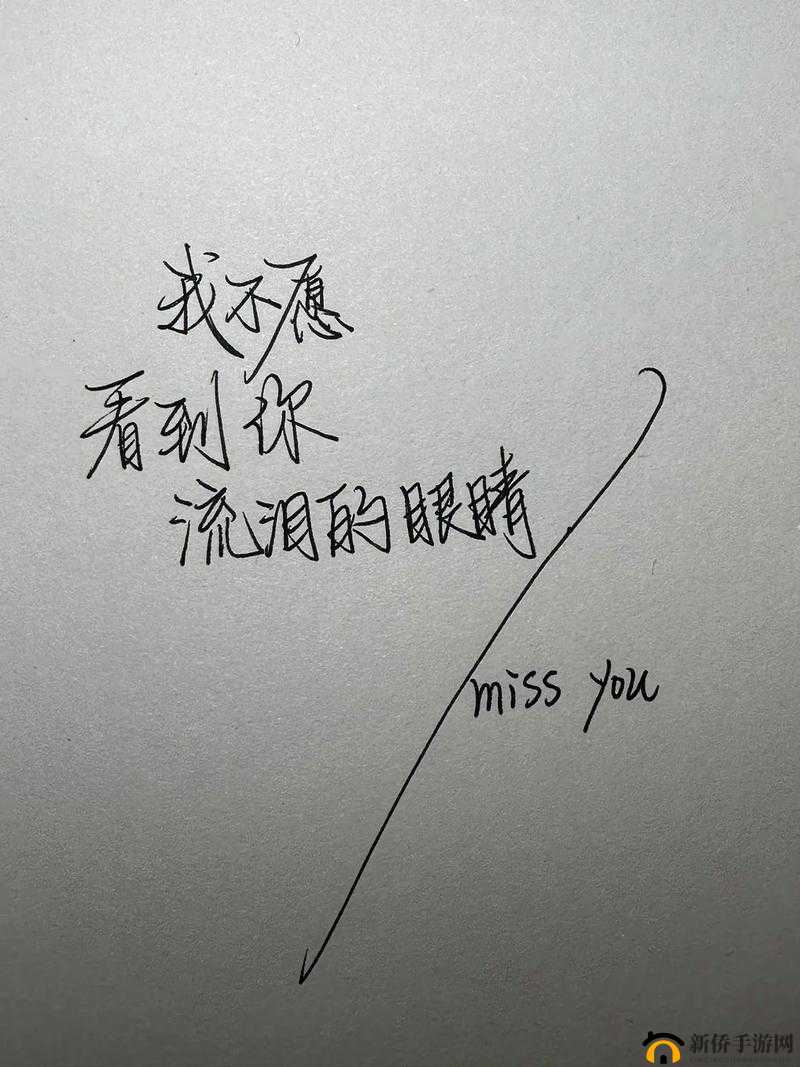 我不愿
看到你
流泪的眼睛
miss you
新侨手游网